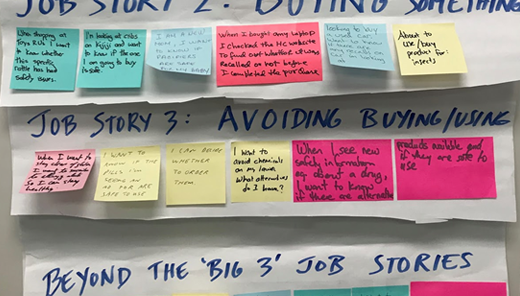 JOB STORY 2: BUYING SOMETHING
When shopping at
Toys RUs I want
to know whether
this specific
rattle has had
safety issues.
I'm looking at cribs
on Kijiji and want
to know if the one
I am going to buy
is safe.
I AM A NEW
MOM, I WANT TO
KNOW IF
ARE SAFE FOR MY BABY
When I bought my laptop
I checked the HC website
to find out whether it was
recalled or not before
I completed the purchase
looking to buy
a used car.
want to
About to
use/buy
product for
insects
JOB STORY 3: AVOIDING BUYING/USING
When I want to
I want
So I can stay
healthy
I WANT TO
KNOW IF THE
PILLS I'M
SEEING
ARE
SAFE TO USE
I CAN DECIDE
WHETHER
TO ORDER
THEM
I want to
avoid chemicals
on my lawn.
What alternatives
do I have?
When I see new
safety information
eg about a drug,
I want to know
if there are alternative
products available and
if they are safe to
use
BEYOND THE 'BIG 3' JOB STORIES